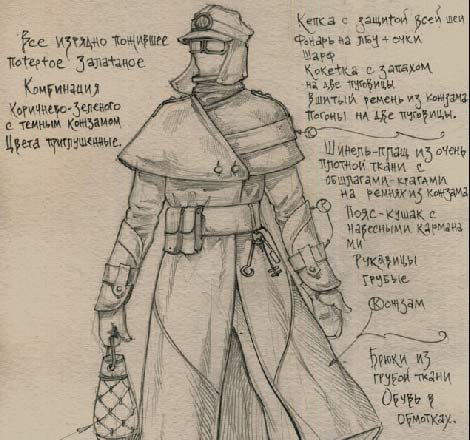 Все изрядно пожившее
потертое залатаное
Комбинация
коричнево-зеленого
с темным кожзамом.
Цвета приглушенные.
Кепка с защитой всей шеи
Фонарь на лбу + очки
Шарф
Кокетка с запахом
на две пуговицы
Вшитый ремень из кожзама
Погоны на две пуговицы.
Шинель-плащ из очень
плотной ткани с
обшлагами-крагами
на ремнях из кожзама
Пояс-кушак с
навесными кармана
ми
Рукавицы
грубые
Кожзам
Брюки из
грубой ткани
Обувь в
обмотках.